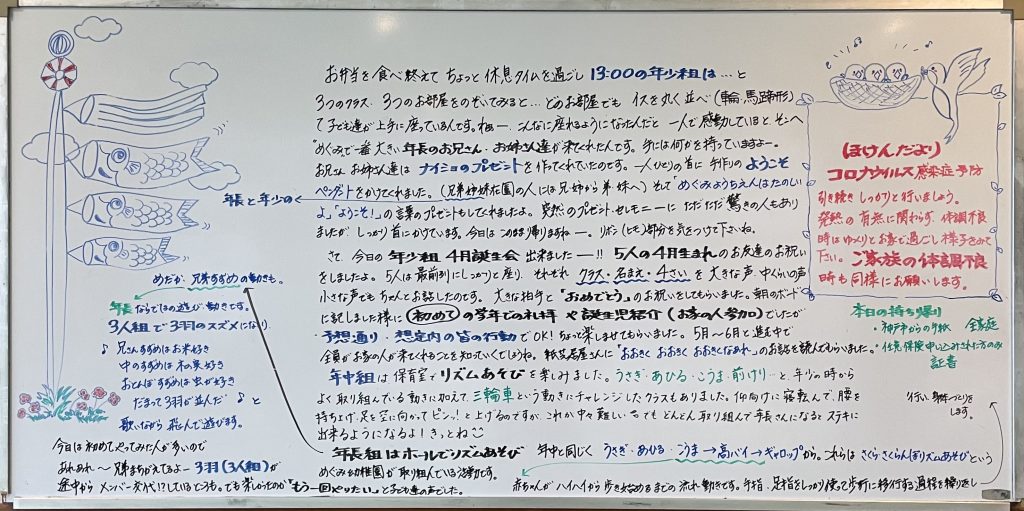 お弁当を食べ終えて ちょっと休息タイムを過ごし 13:00の年少組は…と
3つのクラス・3つのお部屋をのぞいてみると…どのお部屋でも イスを丸く並べ(輪・馬蹄形)
て子ども達が上手に座っているんです。ねぇー、こんなに座れるようになったんだと 一人で感動していると そこへ
めぐみで一番大きい 年長のお兄さん・お姉さん達が来てくれたんです。手には何かを持っていますよー。
お兄さん お姉さん達は ナイショのプレゼントを作ってくれていたのです。一人ひとりの首に 手作りの ようこそ
ペンダントをかけてくれました。(兄弟姉妹在園の人には兄姉から弟妹へ) そして めぐみようちえんはたのしい
よ」「ようこそ!」の言葉のプレゼントもしてくれましたよ。突然のプレゼント・セレモニーに ただただ驚きの人もあり
ましたが しっかり首にかけています。今日はこのまま帰りますねー。リボン(ヒモ)部分を気をつけて下さいね。
さて、今日の 年少組 4月誕生会 出来ましたー!! 5人の4月生まれのお友達のお祝い
をしましたよ。5人は最前列にしっかりと座り、それぞれ クラス・名まえ・4さい を 大きな声、中くらいの声
小さな声でも ちゃんとお話したのです。大きな拍手と「おめでとう」のお祝いをしてもらいました。朝のボード
に記しました様に (初めて)の学年での礼拝 や 誕生児紹介(お家の人参加)でしたが
予想通り・想定内の皆の行動でOK! ちょっと楽しませてもらいました。5月〜6月と進む中で
全員がお家の人が来てくれることを知っていくでしょうね。紙芝居屋さんに「おおきく おおきく おおきくなあれ」のお話を読んでもらいました。
年中組は 保育室でリズムあそびを楽しみました。うさぎ・あひる・こうま・前けり…と 年少の時から
よく取り組んでいる動きに加えて 三輪車という動きにチャレンジしたクラスもありました。仰向けに寝転んで、腰を
持ち上げ、足を空に向かって ピンッ!と上げるのですが、これが中々難しい
出来るようになるよ!きっとね
年長組はホールでリズムあそび 年中と同じく うさぎ・あひる・こうま→高バイ→ギャロップから。これらは さくらさくらんぼリズムあそびという
めぐみ幼稚園が取り組んでいる活動です。
赤ちゃんがハイハイから歩き始めるまでの流れ・動きです。手指・足指をしっかり使って歩行に移行する過程を繰り返し
行い、身体づくりをします。
年長と年少の
めだか、兄弟すずめの動きも。
年長ならではの遊び・動きです。
3人組で3羽のスズメになり
♪ 兄さんすずめはお米好き
中のすずめは木の実好き
おとんぼすずめは虫が好き
だまって3羽が並んだ ♪ と
歌いながら 飛んで遊びます。
今日は初めてやってみた人が多いので
あれあれ〜兄弟まちがえてるよー 3羽(3人組)が
途中から メンバー交代!?している
「もう一回やりたい。」と子ども達の声でした。
(ほけんだより)
コロナウイルス感染症予防
引き続き しっかりと行いましょう。
発熱の有無に関わらず、体調不良
時はゆっくりとお家で過ごし様子をみて
下さい。ご家族の体調不良
時も同様にお願いします。
本日の持ち帰り
・神戸市からの手紙 全家庭
・任意保険申し込みされた方のみ
証書